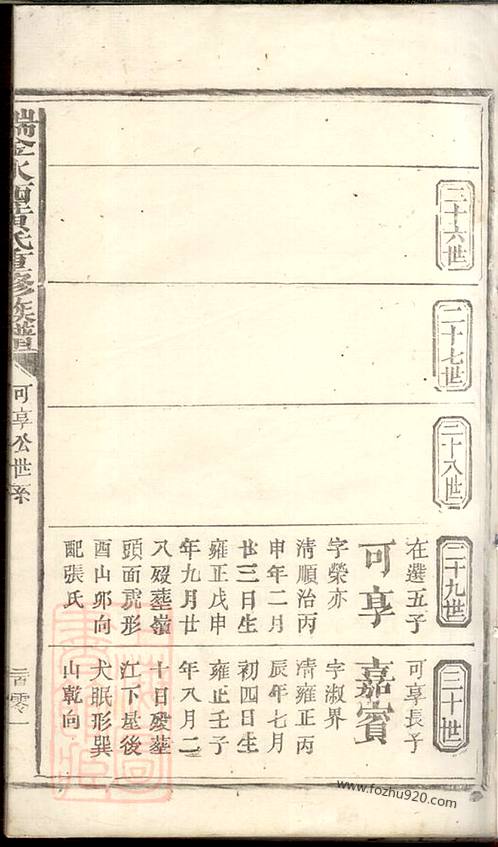 二十六世
二十七世
二十八世
二十九世
在選五子
可享
字榮亦
清順治丙
申年二月
廿三日生
雍正戊申
年九月廿
八歿葬嶺
頭面虎形
酉山卯向
配張氏
三十世
可享長子
嘉賓
字淑界
清雍正丙
辰年七月
初四日生
雍正壬子
年八月二
十日歿葬
江下基後
犬眠形巽
山乾向
氏重修族譜
可享公世系
www.fozhu920.com